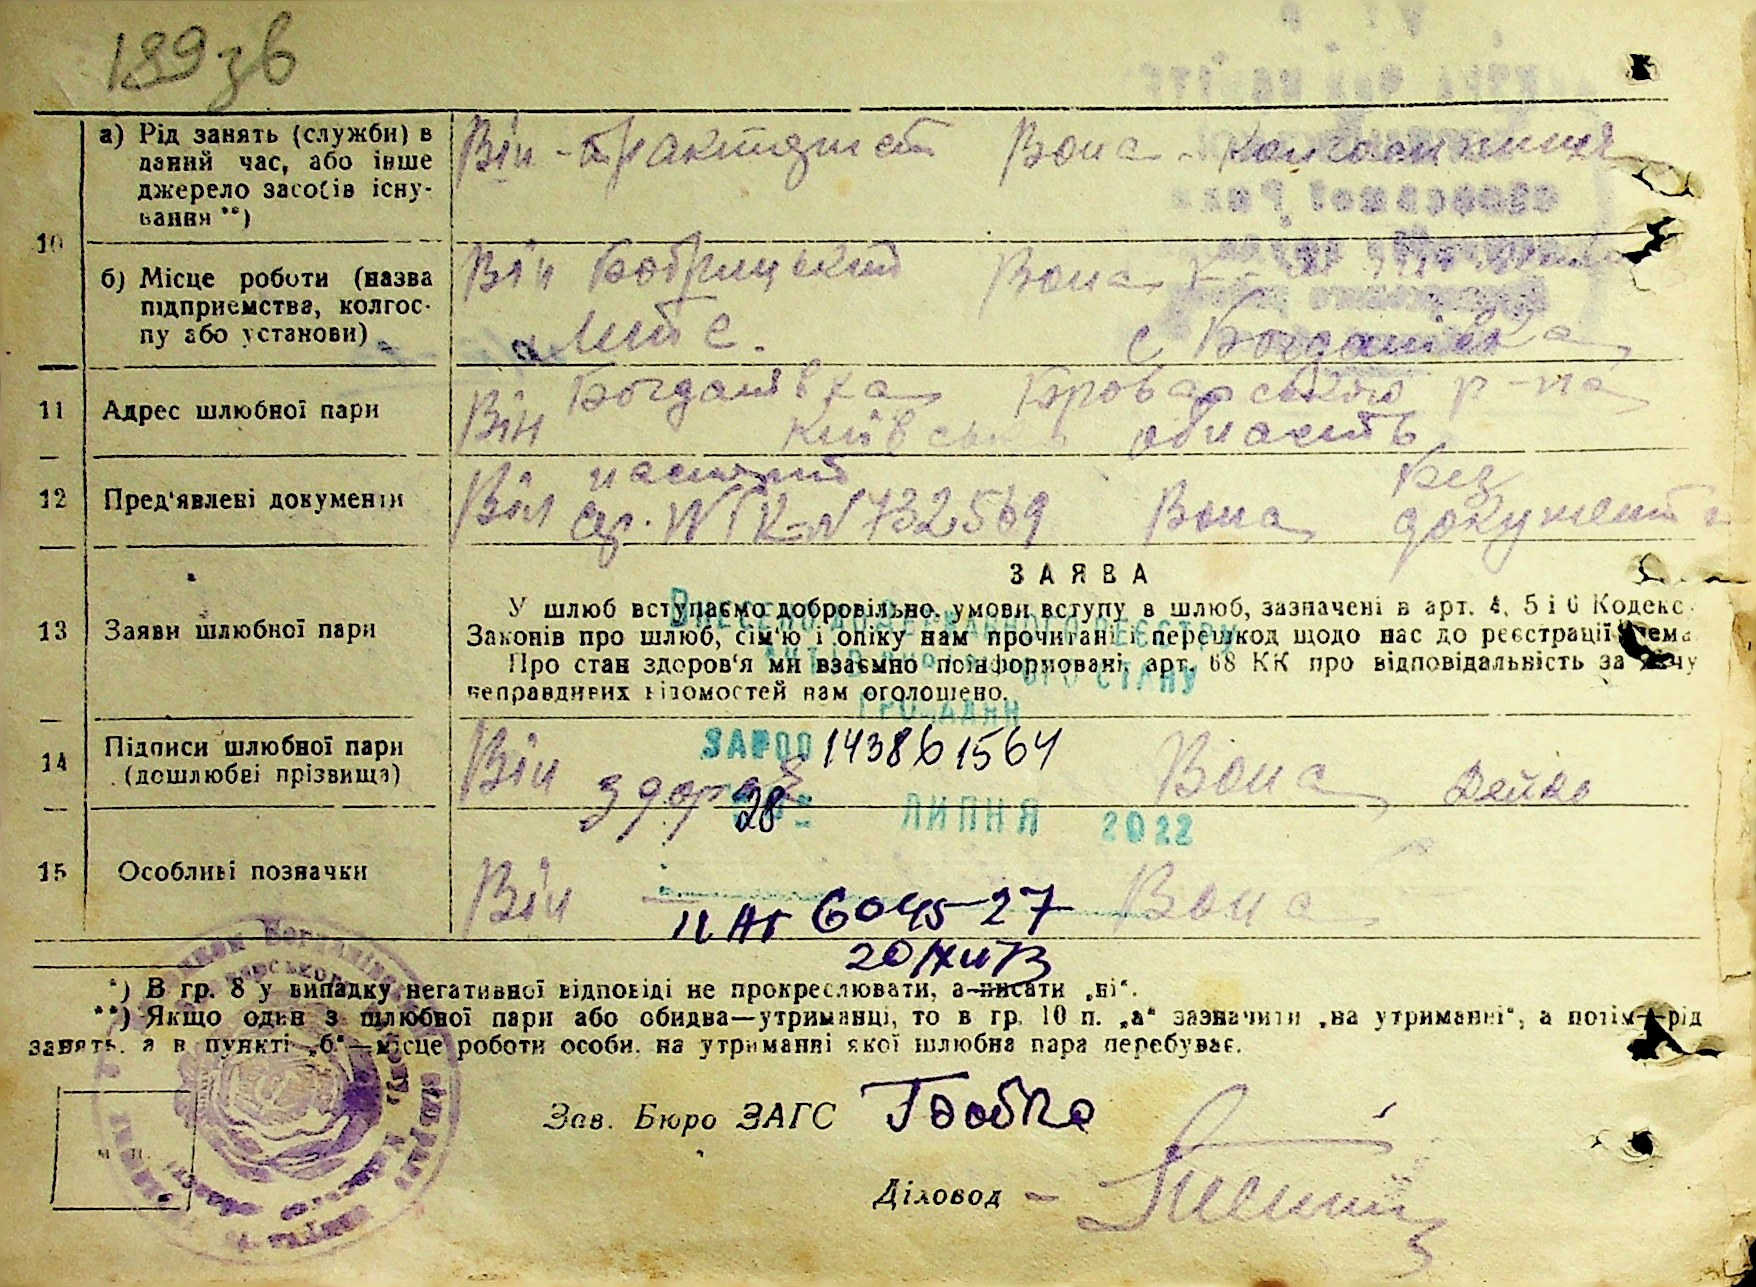 189зв
10
а) Рід занять (служби) в
даний час, або інше
джерело засобів існу-
вання **)
Він - тракторист Вона - колгоспниця
б) Місце роботи (назва
підприємства, колгос-
пу або установи)
Він Бобрицький Вона
МТС. с Богданівка
11
Адрес шлюбної пари
Він Богданівка Броварського р-на
Київська область
12
Пред'явлені документи
Він паспорт
732569 Вона без
документа
13
Заяви шлюбної пари
ЗАЯВА
У шлюб вступаємо добровільно, умови вступу в шлюб, зазначені в арт. 4, 5 і 6 Кодекс
Законів про шлюб, сім'ю і опіку нам прочитані і перешкод щодо нас до реєстрації нема
Про стан здоров'я ми взаємно поінформовані, арт. 68 КК про відповідальність за дачу
неправдивих відомостей нам оголошено.
Внесено до Державного реєстру
актів цивільного стану
громадян
14
Підписи шлюбної пари
(дошлюбні прізвища)
Він Вона Дейко
ЗАР00 143861564
28 ЛИПНЯ 2022
15
Особливі позначки
Він Вона
6045-27
*) В гр. 8 у випадку негативної відповіді не прокреслювати, а писати „ні“.
**) Якщо один з шлюбної пари або обидва—утриманці, то в гр. 10 п. „а“ зазначити „на утриманні“, а потім—рід
занять, а в пункті „б“—місце роботи особи, на утриманні якої шлюбна пара перебуває.
м. п.
Зав. Бюро ЗАГС
Діловод –